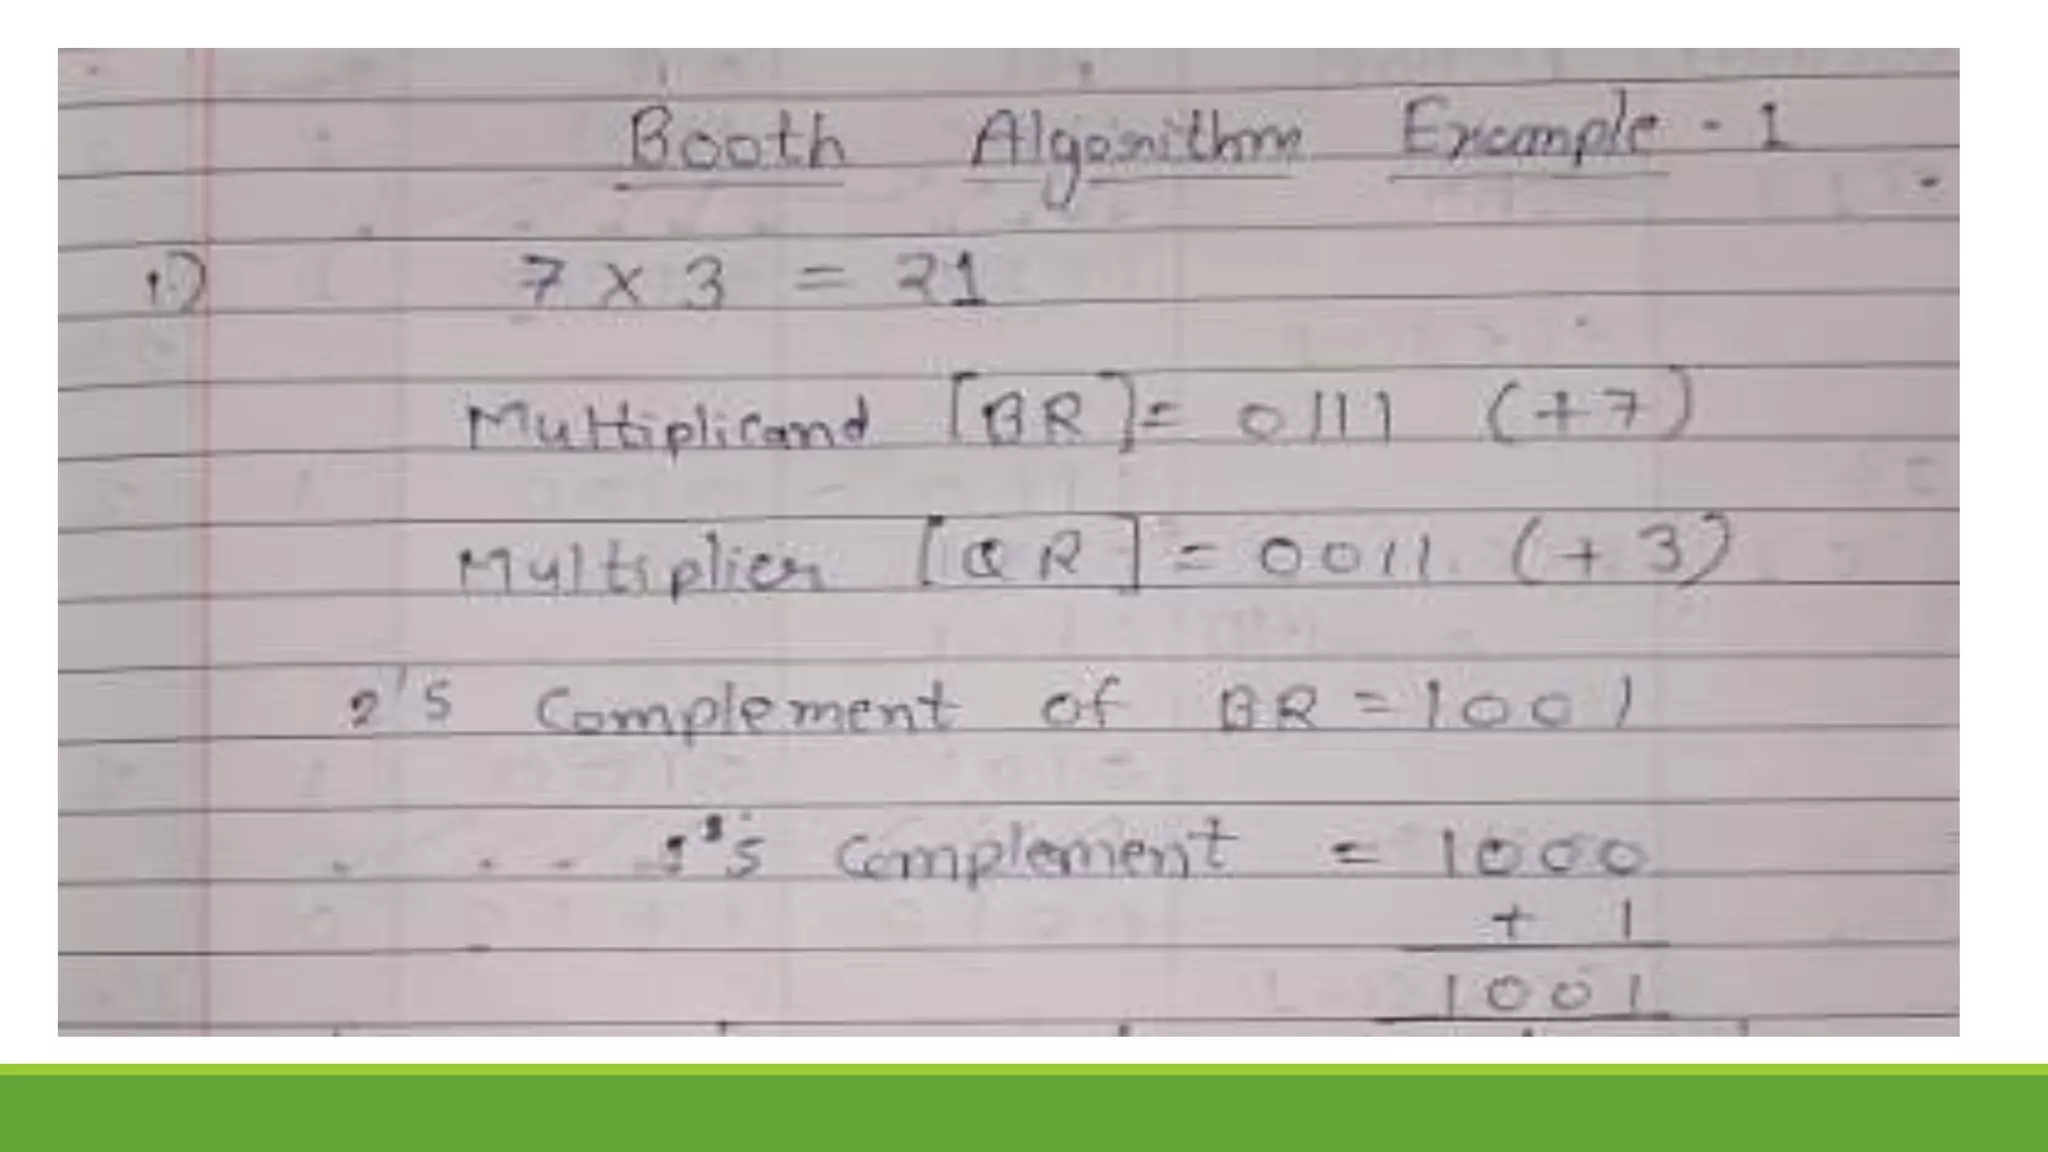 Booth Algorithm Example - 1
1.) 7 x 3 = 21
Multiplicand [BR] = 0111 (+7)
Multiplier [QR] = 0011. (+3)
2's Complement of BR = 1001
1's Complement = 1000
+ 1
1001